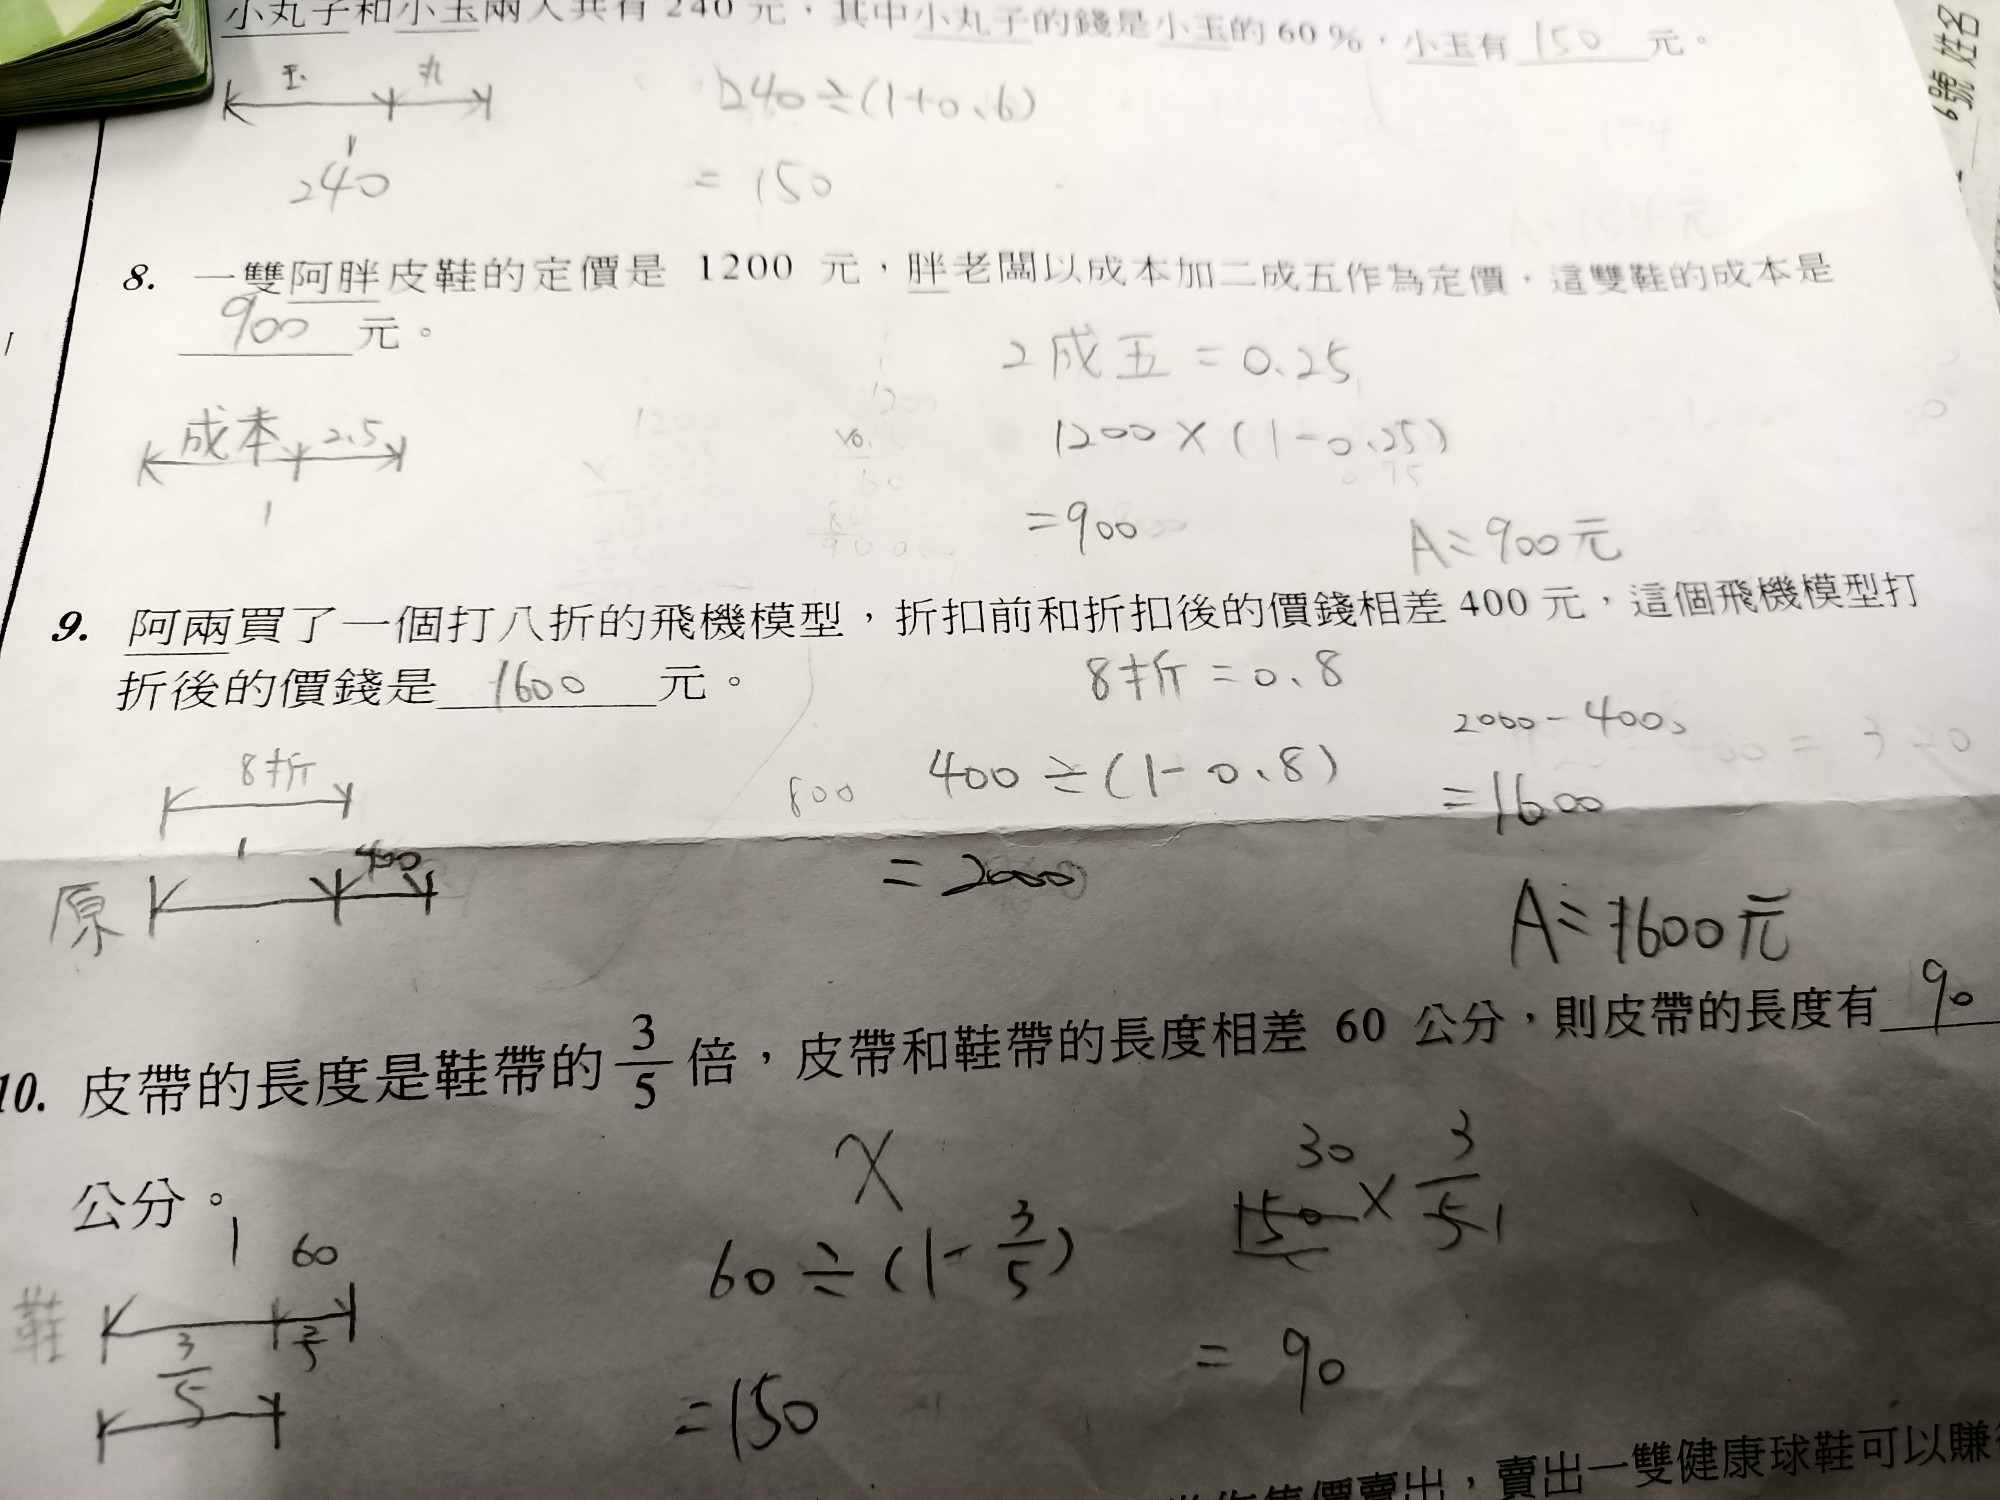 小丸子和小玉兩人共有 240 元，其中小丸子的錢是小玉的 60%，小玉有 150 元。
玉 丸
240÷(1+0.6)
240
= 150
6號 姓名
8. 一雙阿胖皮鞋的定價是 1200 元，胖老闆以成本加二成五作為定價，這雙鞋的成本是
900 元。
2成五 = 0.25
成本 2.5
1200×(1-0.25)
1
=900
A:900元
9. 阿兩買了一個打八折的飛機模型，折扣前和折扣後的價錢相差 400 元，這個飛機模型打
折後的價錢是 1600 元。
8折 = 0.8
2000-400
8折
800
400÷(1-0.8)
=1600
1 400
原
= 2000
A:1600元
10. 皮帶的長度是鞋帶的 3/5 倍，皮帶和鞋帶的長度相差 60 公分，則皮帶的長度有 90
公分。
1 60
X
30
150×3/5 1
60÷(1-3/5)
鞋
3/5
= 90
=150
售價賣出，賣出一雙健康球鞋可以賺